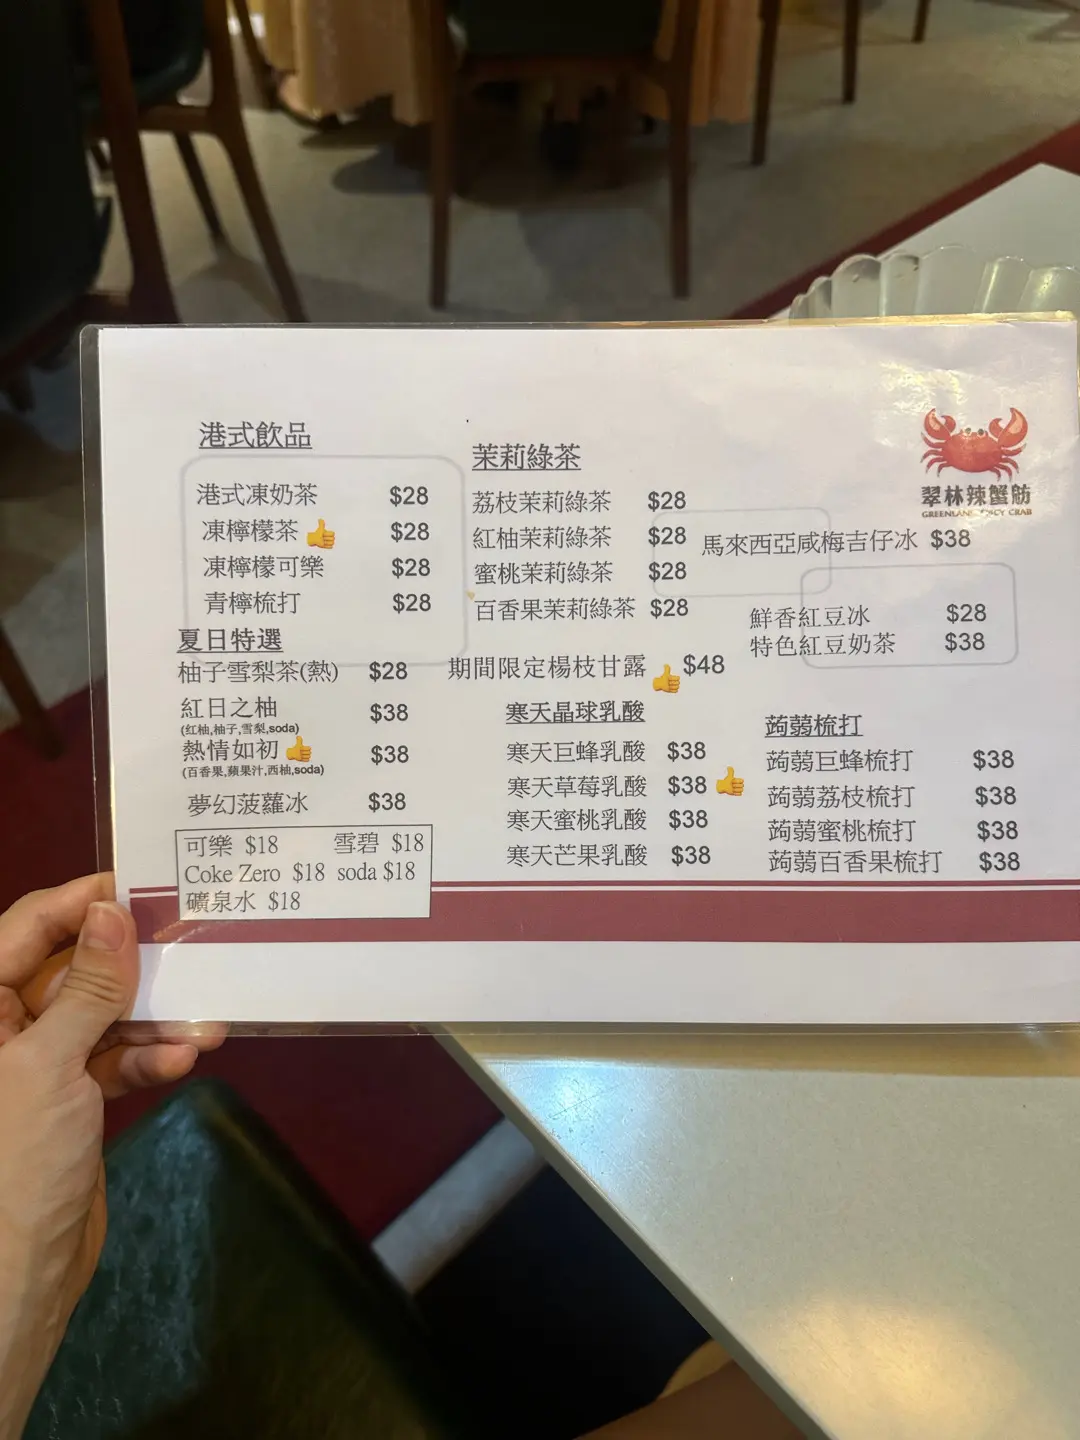 港式飲品
港式凍奶茶 $28
凍檸檬茶 $28
凍檸檬可樂 $28
青檸梳打 $28
夏日特選
柚子雪梨茶(熱) $28
紅日之柚 $38
(红柚,柚子,雪梨,soda)
熱情如初 $38
(百香果,蘋果汁,西柚,soda)
夢幻菠蘿冰 $38
可樂 $18 雪碧 $18
Coke Zero $18 soda $18
礦泉水 $18
茉莉綠茶
荔枝茉莉綠茶 $28
紅柚茉莉綠茶 $28
蜜桃茉莉綠茶 $28
百香果茉莉綠茶 $28
期間限定楊枝甘露 $48
寒天晶球乳酸
寒天巨蜂乳酸 $38
寒天草莓乳酸 $38
寒天蜜桃乳酸 $38
寒天芒果乳酸 $38
翠林辣蟹舫
GREENLAND SPICY CRAB
馬來西亞咸梅吉仔冰 $38
鮮香紅豆冰 $28
特色紅豆奶茶 $38
蒟蒻梳打
蒟蒻巨蜂梳打 $38
蒟蒻荔枝梳打 $38
蒟蒻蜜桃梳打 $38
蒟蒻百香果梳打 $38